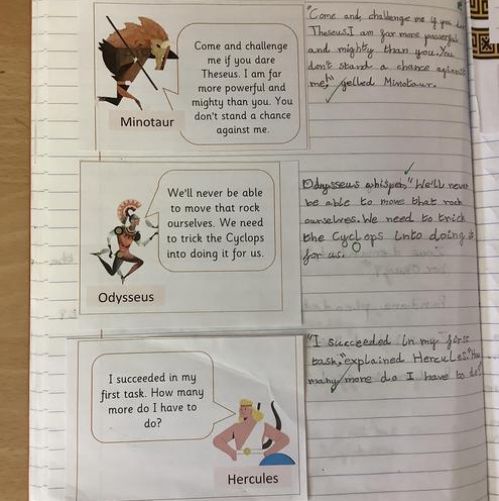 Come and challenge
me if you dare
Theseus. I am far
more powerful and
mighty than you. You
don't stand a chance
against me.
Minotaur
"Come and challenge me if you
Theseus. I am far more powerful
and mighty than you. You
don't stand a chance against
me!" yelled Minotaur.
We'll never be able
to move that rock
ourselves. We need
to trick the Cyclops
into doing it for us.
Odysseus
Odysseus whisper, "We'll never
be able to move that rock
ourselves. We need to trick
the Cyclops into doing it
for us.
I succeeded in my
first task. How many
more do I have to
do?
Hercules
"I succeeded in my first
task," explained Hercules. "How
many more do I have to do?